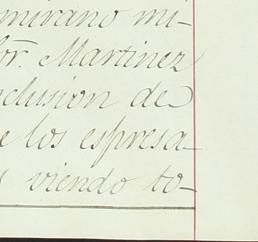 mirano mi-
or. Martinez
clusion de
e los espresa-
viendo to-